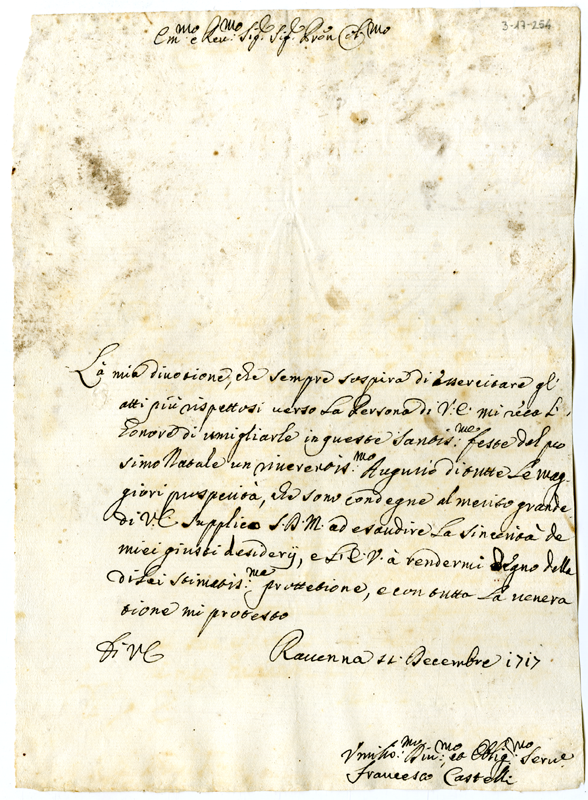 3-17-254
Em.mo e Rev.mo Sig.r Sig.r Prōn Col.mo
La mia divotione, che sempre sospira di essercitare gl'
atti più rispettosi verso la Persona di V: E: mi reca l'
honore di umigliarle in queste Santis:me feste del pros
simo Natale un riverentis:mo Augurio di tutte le mag
giori prosperità, che sono condegne al merito grande
di V: E: Supplico S. D. M. ad esaudire la sincerità de
miei giusti desiderij, e l'E. V. à rendermi degno della
di lei stimatis:ma prottetione, e con tutta la venera
tione mi protesto
Di V E
Ravenna Decembre 1717
Vmiliss.mo Diu:mo et Oblig.mo Seru.e
Francesco Castelli